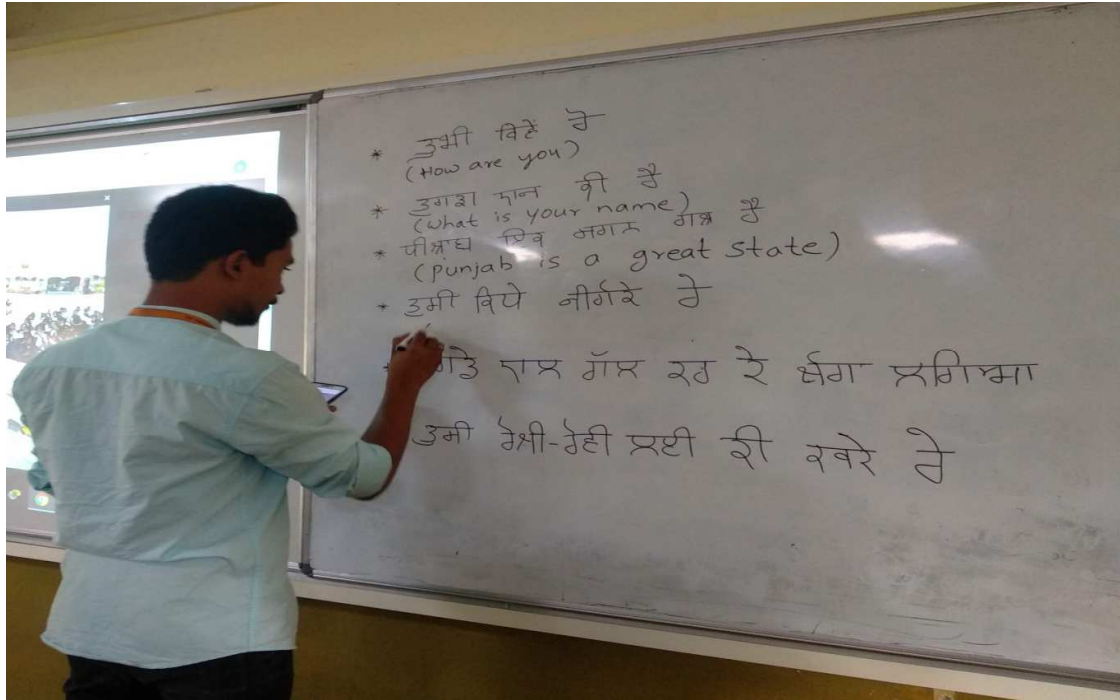 * ਤੁਸੀ ਕਿਵੇਂ ਹੋ
(How are you)
* ਤੁਹਾਡਾ ਨਾਮ ਕੀ ਹੈ
(what is your name)
* ਇਕ ਹੈ
(punjab is a great state)
* ਤੁਸੀ ਕਿਥੇ ਹੋ
ਨਾਲ ਗੱਲ ਕਰ ਕੇ ਚੰਗਾ ਲਗਿਆ
ਤੁਸੀ ਰੋਜ਼ੀ-ਰੋਟੀ ਲਈ ਕੀ ਕਰਦੇ ਹੋ